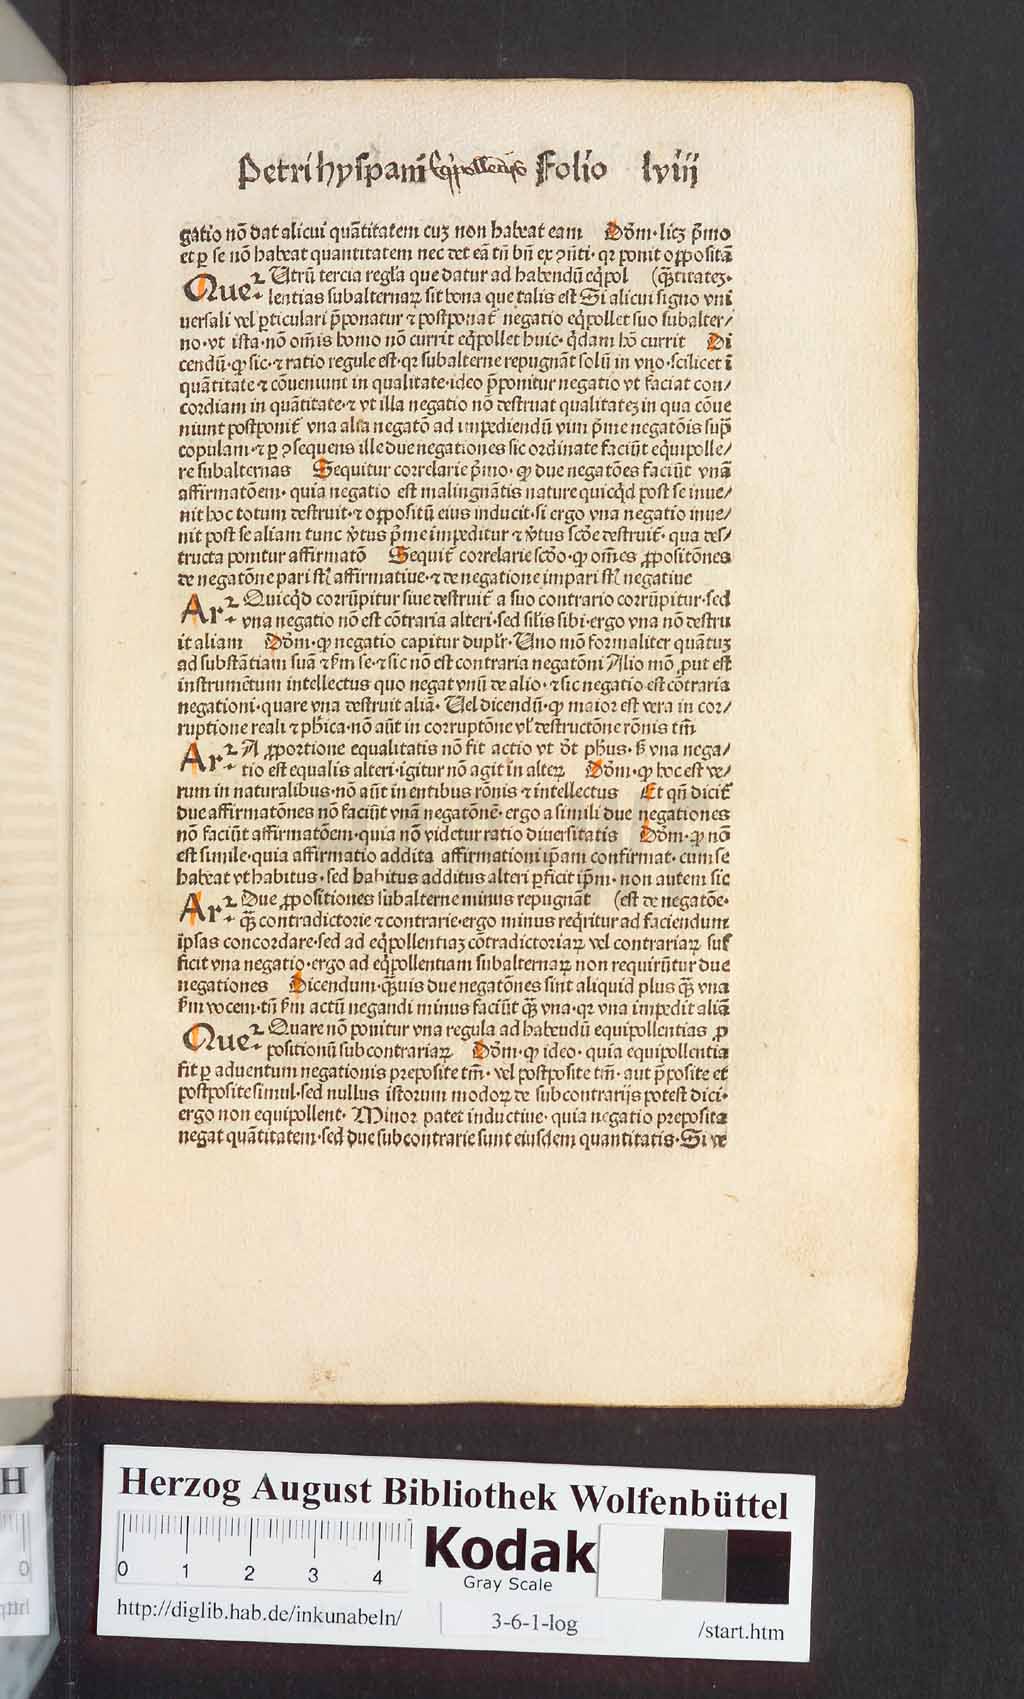 Petri hyspani Folio lviij
gatio nō dat alicui quātitatem cuȝ non habeat eam Dōm· licȝ p̄mo
et ꝑ se nō habeat quantitatem nec det eā tn̄ bn̄ ex ꝯn̄ti· qꝛ ponit oppositā
Que· Utrū tercia regl̃a que datur ad habendū eq̄pol (q̄ȝtitateȝ·
lentias subalternaꝝ sit bona que talis est Si alicui signo vni
uersali vel ꝑticulari p̄ponatur ⁊ postponat̄ negatio eq̄pollet suo subalter/
no· vt ista· nō om̄is homo nō currit eq̄pollet huic· q̄dam hō currit Di
cendū· ꝙ sic· ⁊ ratio regule est· qꝛ subalterne repugnāt solū in vno· scilicet ī
quātitate ⁊ cōueniunt in qualitate· ideo p̄ponitur negatio vt faciat con/
cordiam in quātitate· ⁊ vt illa negatio nō destruat qualitateȝ in qua cōue
niunt postponit̄ vna alia negatō ad impediendū vim p̄me negatōis sup̄
copulam· ⁊ ꝑ ꝯsequens ille due negationes sic ordinate faciūt equipolle/
re subalternas Sequitur correlarie p̄mo· ꝙ due negatōes faciūt vnā
affirmatōem· quia negatio est malingnātis nature quicq̄d post se inue/
nit hoc totum destruit· ⁊ oppositū eius inducit· si ergo vna negatio inue/
nit post se aliam tunc v̄tus p̄me impeditur ⁊ v̄tus scd̄e destruit̄· qua des/
tructa ponitur affirmatō Sequit̄ correlarie scd̄o· ꝙ om̄es ꝓpositōnes
de negatōne pari st̄ affirmatiue· ⁊ de negatione impari st̄ negatiue
Ar· Quicq̄d corrūpitur siue destruit̄ a suo contrario corrūpitur· sed
vna negatio nō est cōtraria alteri· sed sil̃is sibi· ergo vna nō destru
it aliam Dōm· ꝙ negatio capitur dupl̃r· Uno mō formaliter quātuȝ
ad substātiam suā ⁊ km̄ se· ⁊ sic nō est contraria negatōni Alio mō ꝓut est
instrumētum intellectus quo negat vnū de alio· ⁊ sic negatio est cōtraria
negationi· quare vna destruit aliā· Uel dicendū· ꝙ maior est vera in cor/
ruptione reali ⁊ ph̄ica· nō aūt in corruptōne vl̃ destructōne rōnis tm̄
Ar· A ꝓportione equalitatis nō fit actio vt dt̄ ph̄us· sꝫ vna nega/
tio est equalis alteri· igitur nō agit in alteꝝ Dōm· ꝙ hoc est ve/
rum in naturalibus· nō aūt in entibus rōnis ⁊ intellectus Et qn̄ dicit̄
due affirmatōnes nō faciūt vnā negatōnē· ergo a simili due negationes
nō faciūt affirmatōem· quia nō videtur ratio diuersitatis Dōm· ꝙ nō
est simile· quia affirmatio addita affirmationi ip̄am confirmat· cum se
habeat vt habitus· sed habitus additus alteri ꝑficit ip̄m· non autem sic
Ar· Due ꝓpositiones subalterne minus repugnāt (est de negatōe·
q̄ȝ contradictorie ⁊ contrarie· ergo minus req̄ritur ad faciendum
ipsas concordare· sed ad eq̄pollentiaȝ cōtradictoriaꝝ vel contrariaꝝ suf
ficit vna negatio· ergo ad eq̄pollentiam subalternaꝝ non requirūtur due
negationes Dicendum· q̄ȝuis due negatōnes sint aliquid plus q̄ȝ vna
km̄ vocem· tn̄ km̄ actū negandi minus faciūt q̄ȝ vna· qꝛ vna impedit aliā
Que· Quare nō ponitur vna regula ad habendū equipollentias ꝓ
positionū subcontrariaꝝ Dōm· ꝙ ideo· quia equipollentia
fit ꝑ aduentum negationis preposite tm̄· vel postposite tm̄· aut p̄posite et
postposite simul· sed nullus istorum modoꝝ de subcontrarijs potest dici·
ergo non equipollent· Minor patet inductiue· quia negatio preposita
negat quātitatem· sed due subcontrarie sunt eiusdem quantitatis· Si ve
Herzog August Bibliothek Wolfenbüttel
0 1 2 3 4
Kodak
Gray Scale
http://diglib.hab.de/inkunabeln/
3-6-1-log
/start.htm